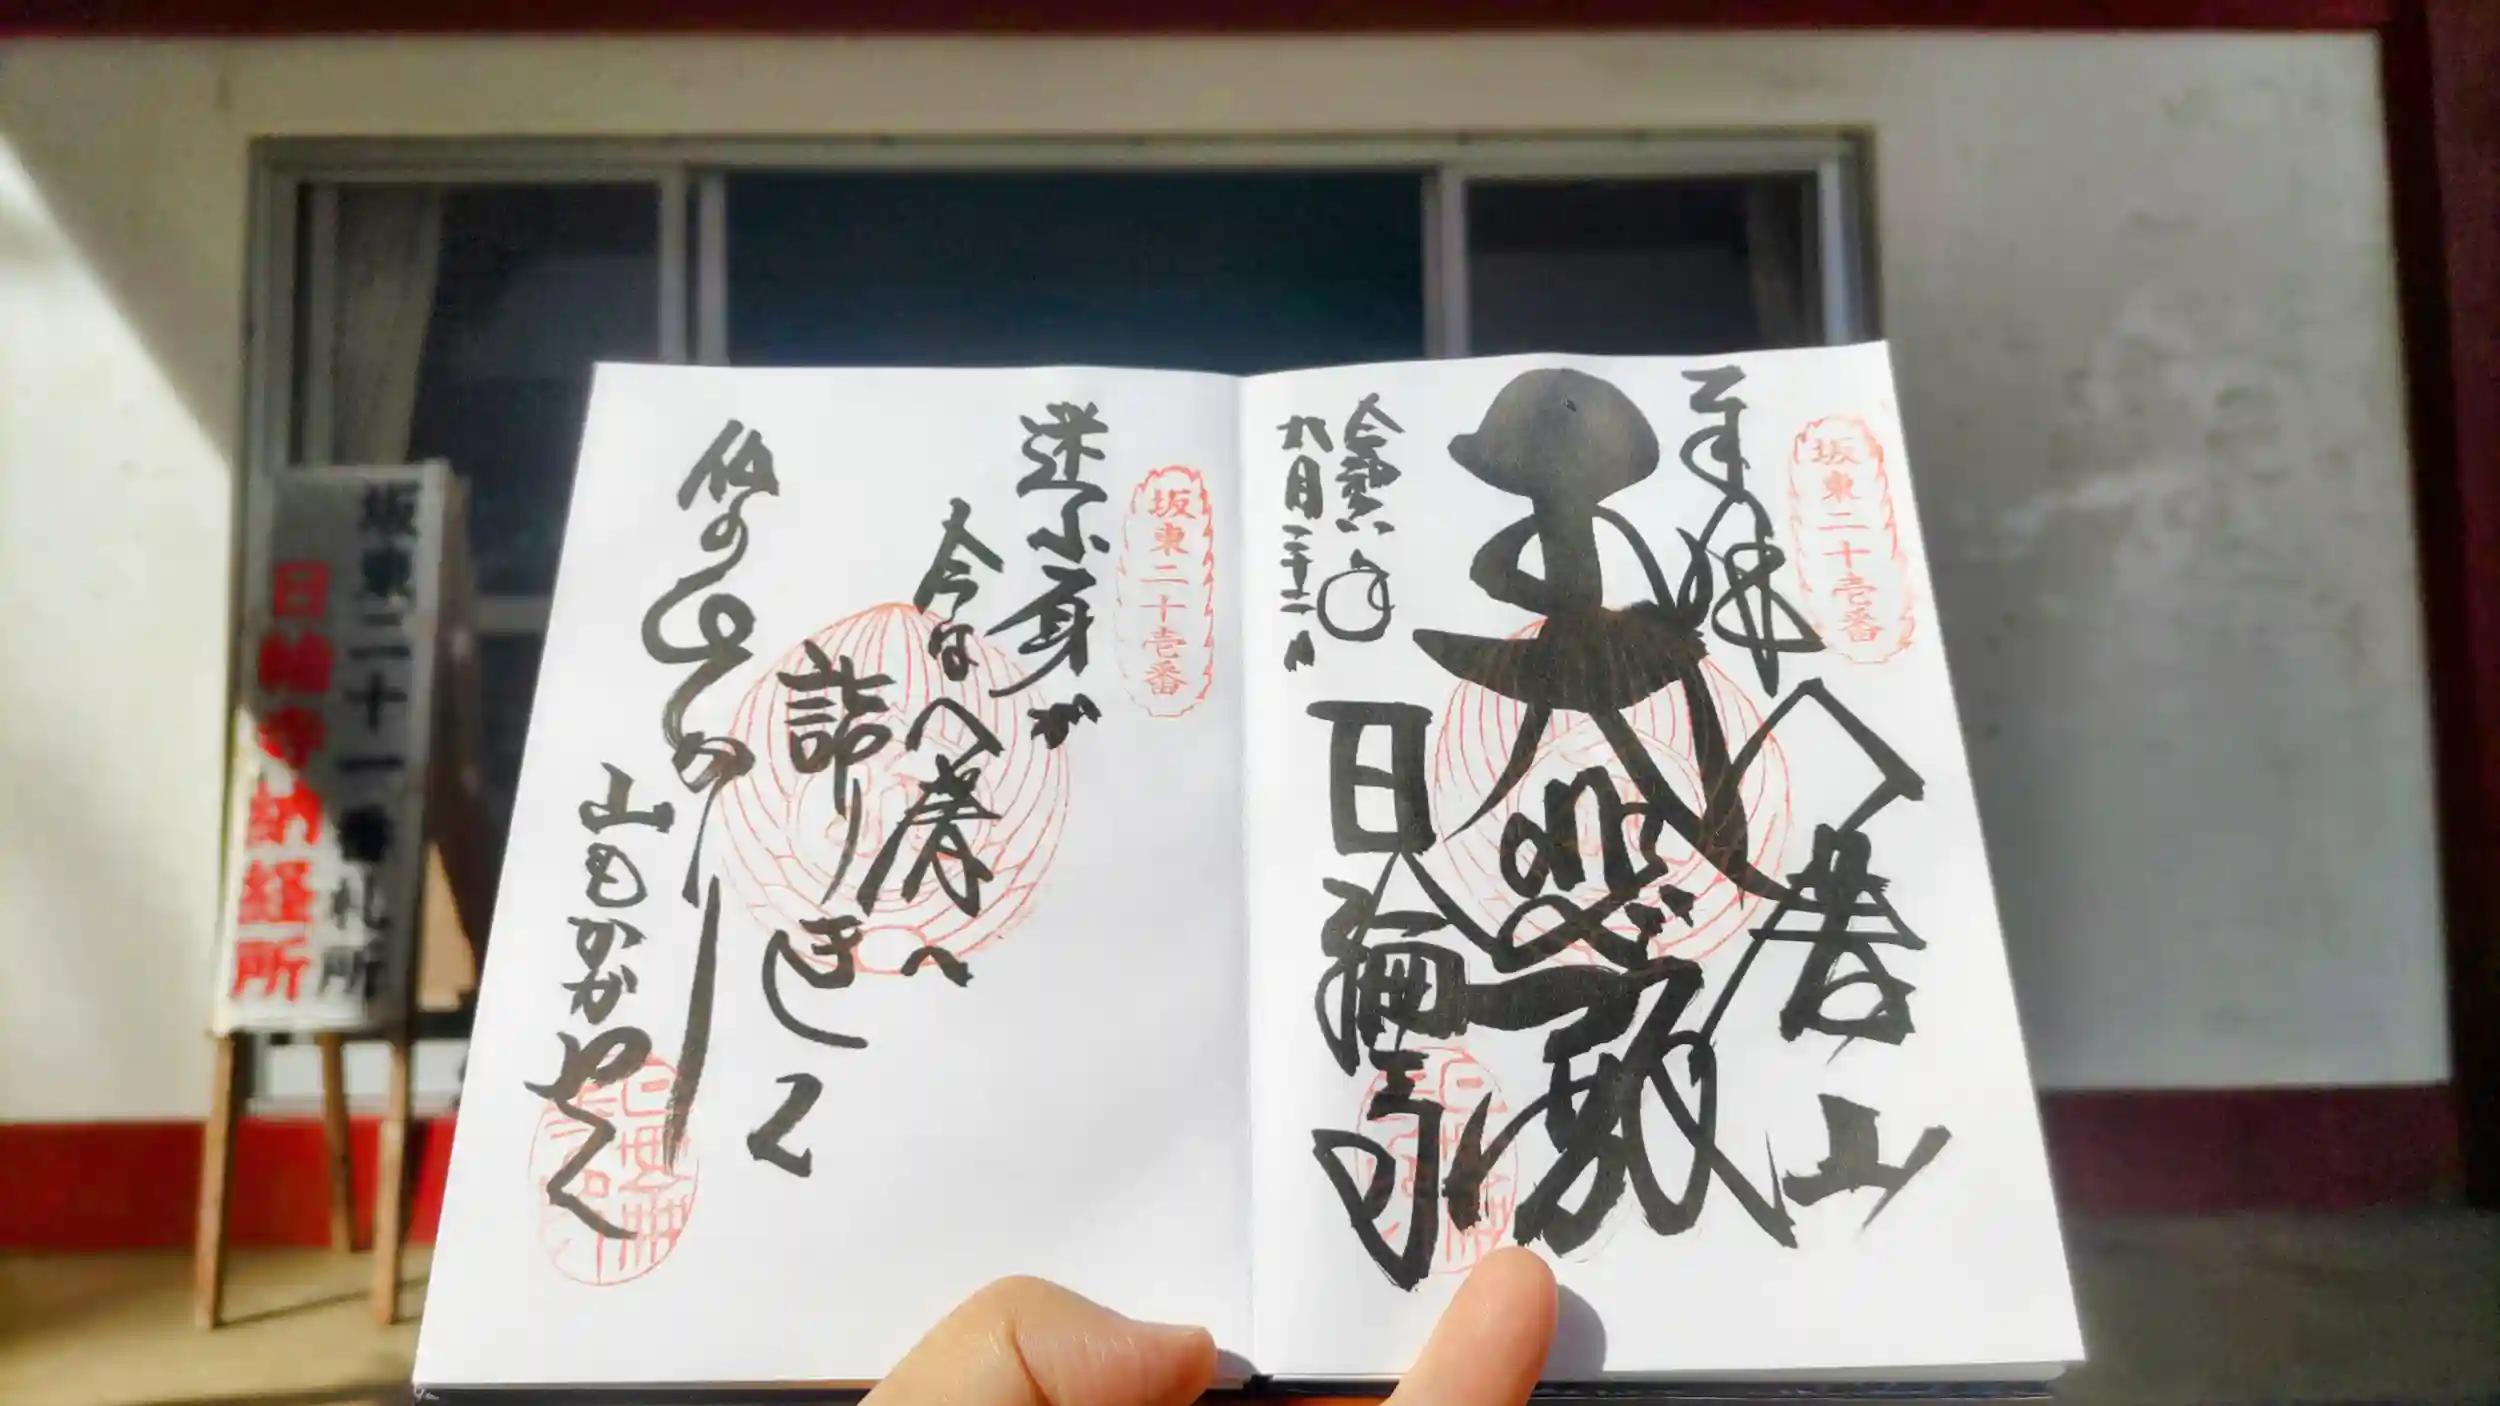 坂東二十壱番
奉拝
八溝山
大悲殿
日輪寺
令和六年
九月二十二日
坂東二十壱番
迷ふ身が
今は八溝へ
詣りきて
仏のひかり
山もかがやく
坂東二十一番札所
日輪寺納経所